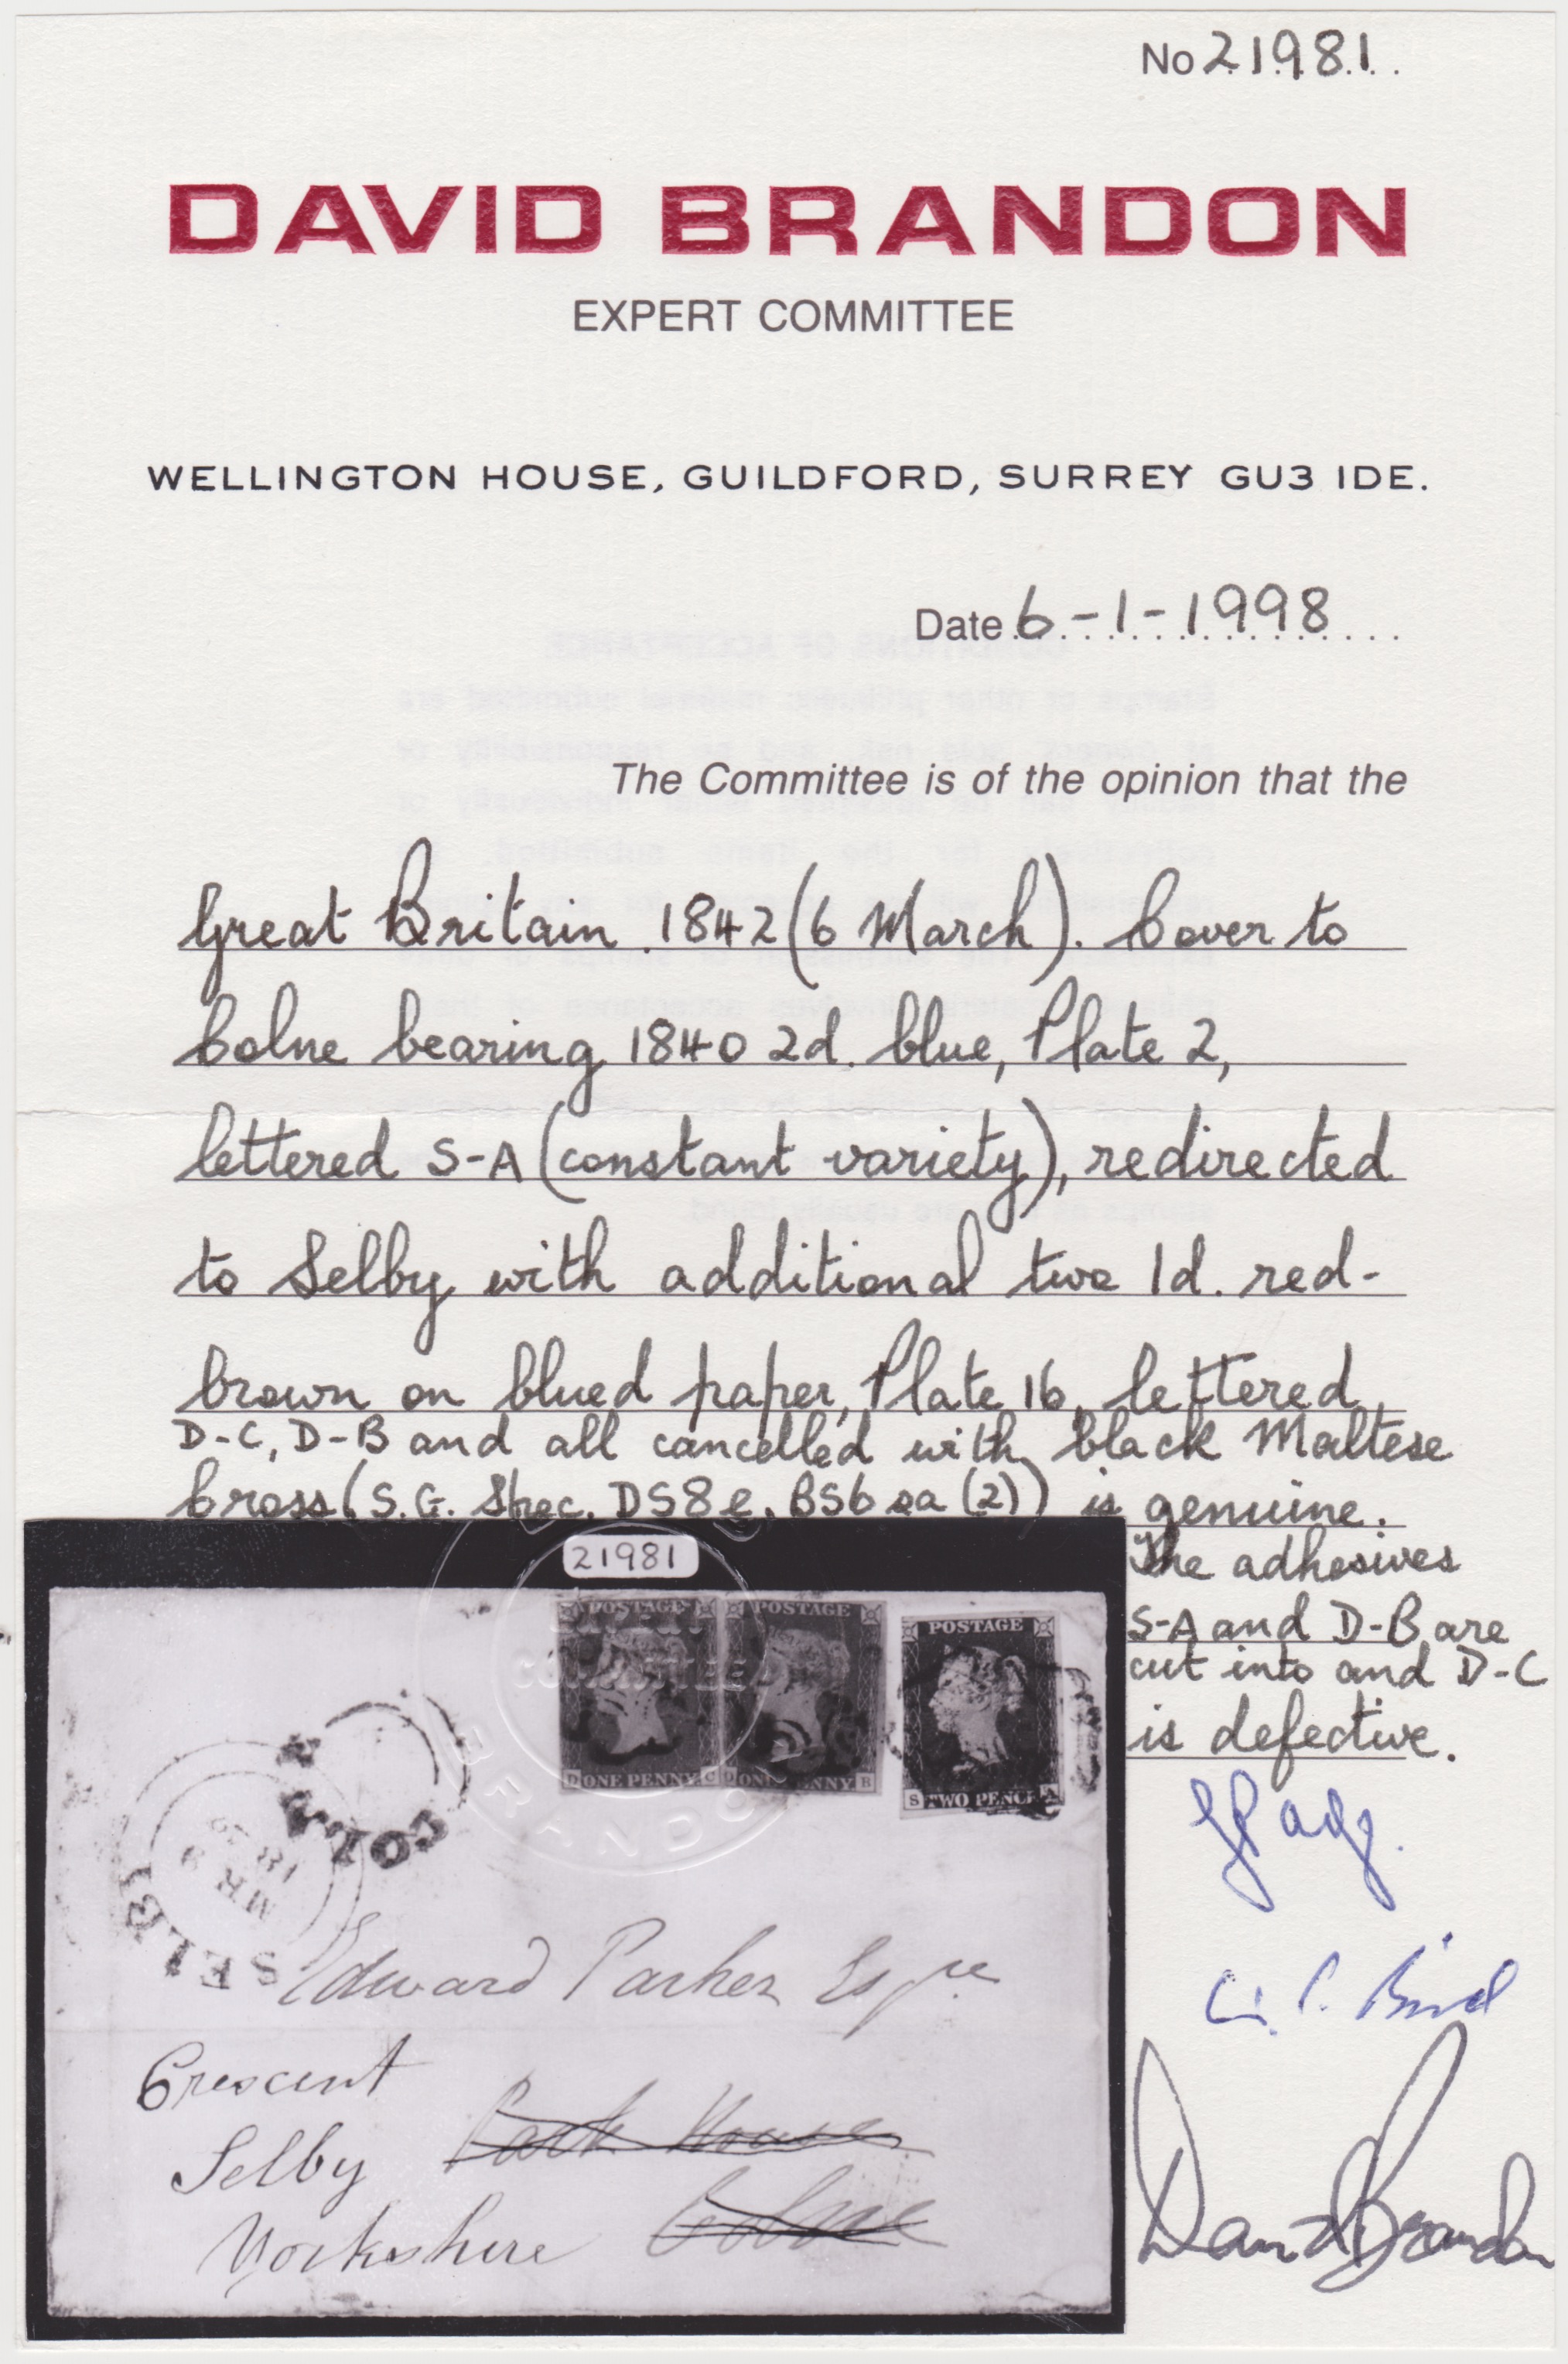 No 21981
DAVID BRANDON
EXPERT COMMITTEE
WELLINGTON HOUSE, GUILDFORD, SURREY GU3 1DE.
Date 6-1-1998
The Committee is of the opinion that the
Great Britain 1842 (6 March). Cover to
Colne bearing 1840 2d. blue, Plate 2,
lettered S-A (constant variety), redirected
to Selby with additional two 1d. red-
brown on blued paper, Plate 16, lettered
D-C, D-B and all cancelled with black Maltese
Cross (S.G. Spec. DS8e, BS6 (2)) is genuine.
The adhesives
S-A and D-B are
cut into and D-C
is defective.
David Brandon
21981
EXPERT
COMMITTEE
BRANDON
POSTAGE
D ONE PENNY C
POSTAGE
D ONE PENNY B
POSTAGE
S TWO PENCE A
COLNE
SELBY
MR 9
Edward Parker Esqre
Crescent
Selby
Yorkshire
Park House
Colne